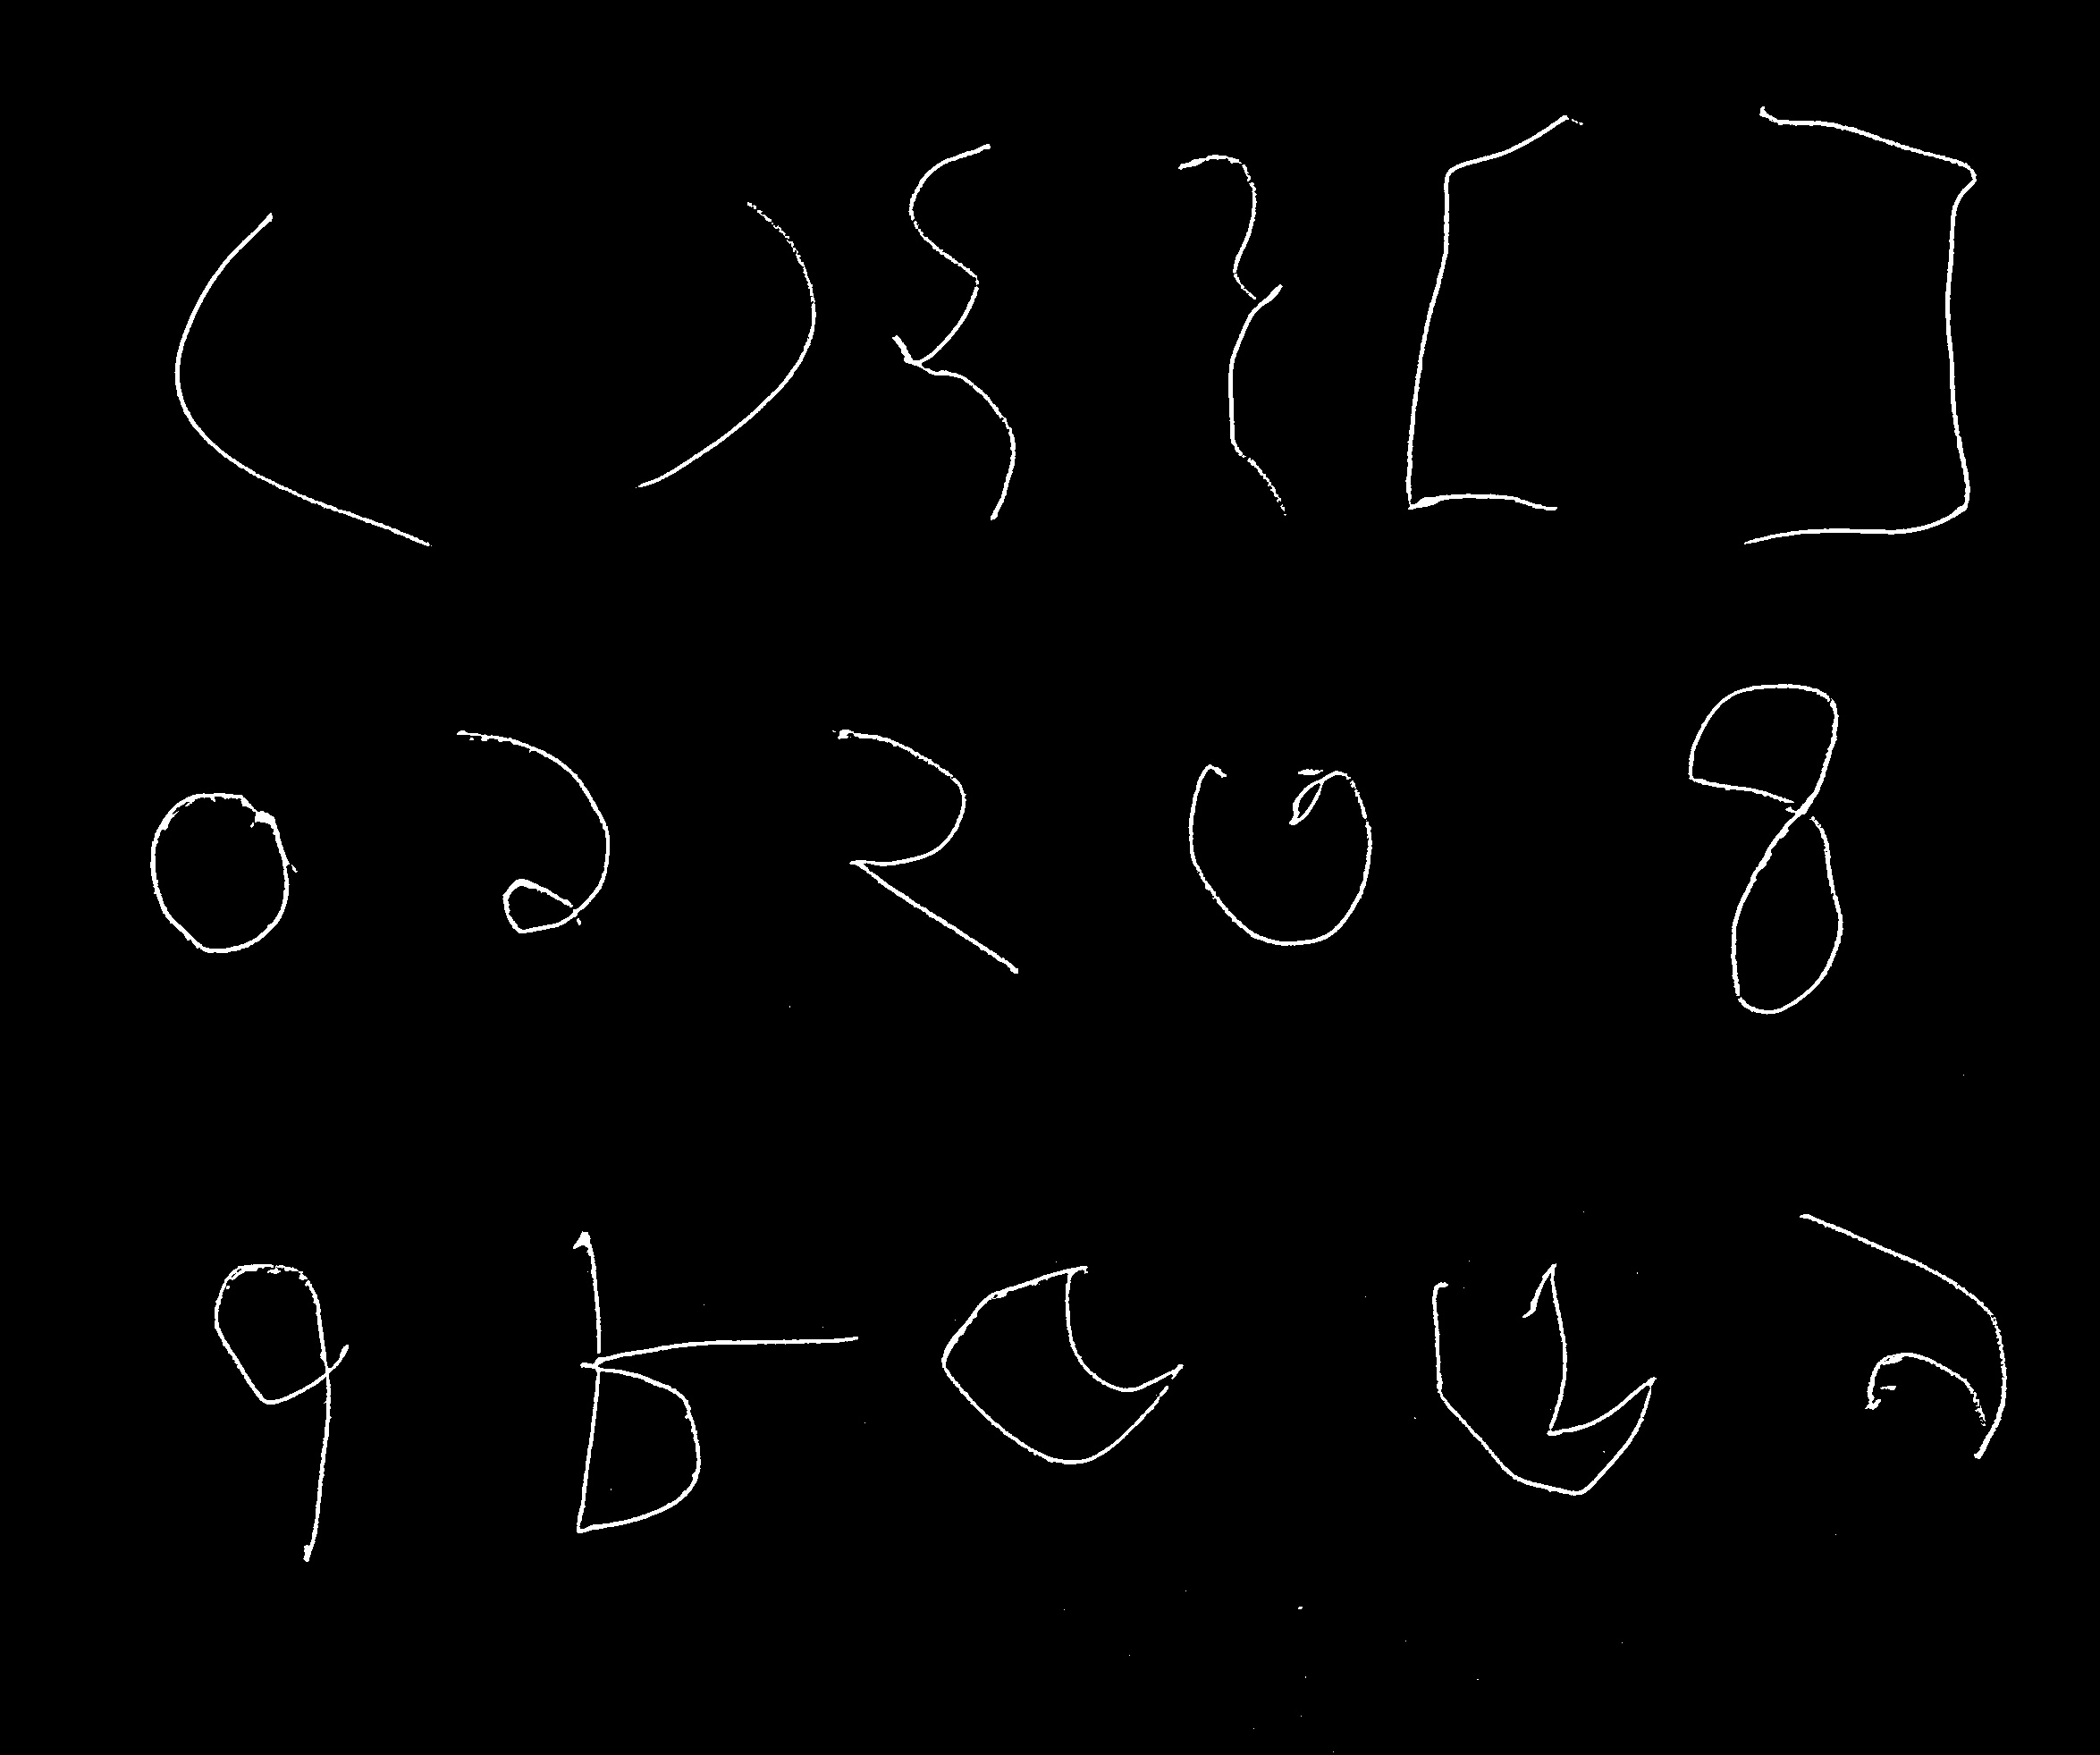 ( ) { } [ ]
০ ১ ২ ৩ ৪
৭ ৮ ৫ ৬ ৯